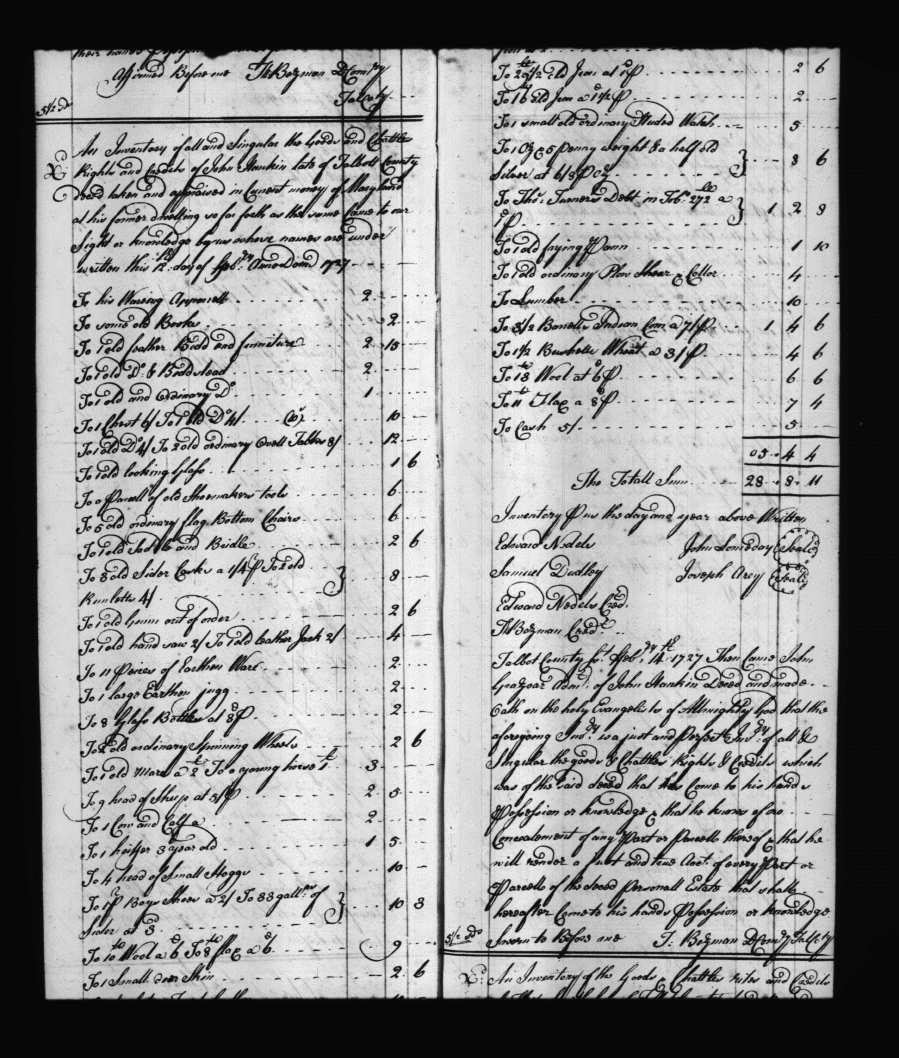 Affirmed Before me Th Bozman D Comry
Talb Cty
5 1/2 Sds
An Inventory of all and Singular the Goods and Chattles
Rights and Credits of John Hankin late of Talbott County
Decd taken and appraised in Current money of Maryland
at his former dwelling so far forth as the same Came to our
Sight or knowledge by us whose names are under
written this 12th day of Febry Anno Domi 1727
To his Wareing Apparell 2
To some old Books 2
To 1 old feather Bedd and furniture 2 15
To 1 old Do & Bedstead 2
To 1 old and ordinary Do 1
To 1 Chest 6/ To 1 old Do 4/ 10
To 1 old Do 4/ To 2 old ordinary Ovell Tables 8/ 12
To 1 old looking Glass 1 6
To a Parcell of old Shoemakers tools 6
To 5 old ordinary flag Bottom Chairs 6
To 1 old Saddle and Bridle 2 6
To 3 old Sider Casks a 1/4 P To 2 old
Runletts 4/ 8
To 1 old Gunn out of order 2 6
To 1 old hand saw 2/ To 1 old leather Jack 2/ 4
To 11 Peices of Earthen Ware 2
To 1 large Earthen jugg 2
To 3 Glass Bottles at 8d P 2
To 2 old ordinary Spinning Wheels 2 6
To 1 old Mare a 2 To a young horse 1 3
To 9 head of Sheep at 5/ P 2 5
To 1 Cow and Calf a 2
To 1 heiffer 3 year old 1 5
To 4 head of Small Hoggs 10
To 1 P Boys Shoes a 2/ To 33 galls of
Sider at 3 10 3
To 10 Wool a 6 To 8 flax a 6 9
To 1 Small deer Skin 2 6
To old Iron at 1d P 2 6
To 16 old Iron a 1 1/2 P 2
To 1 small old ordinary Watch 5
To 1 Oz & 5 penny weight & a half old
Silver at 6/8 P Oz 8 6
To Thos Turners Debt in Tobo 272 a
P 1 2 8
To 1 old frying Pann 1 10
To 1 old ordinary Plow Shear & Colter 4
To Lumber 10
To 3 1/2 Barrells Indian Corn a 7/ P 1 4 6
To 1 1/2 Bushells Wheat a 3/ P 4 6
To 13 Wool at 6 P 6 6
To 11 Flax a 8d P 7 4
To Cash 5/ 5
05 4 4
The Totall Sum 28 8 11
Inventory Pus the day and year above Written
Edward Nedels John Lomedoy (Seald)
Samuel Dudley Joseph Arey (Seal)
Edward Nedels Cred.
Th Bozman Cred.
Talbot County sst Febry 14th 1727 Then Came John
Admr of John Hankin Deced and made
Oath on the holy Evangelis to of Allmighty God that the
aforegoing Invry is a just and Perfect Invry of all &
Singular the goods & Chattles Rights & Credits which
was of the said deced that has Come to his hands
Possession or knowledge & that he knows of no
Concealement of any Part or Parcelle thereof & that he
will render a just and true Acct of every Part or
Parcelle of his deced Personall Estate that shall
hereafter Come to his hands Possession or knowledge
5 1/2 Sds Sworn to Before me T. Bozman D Comry Talb Ty
An Inventory of the Goods Chattles rites and Credits